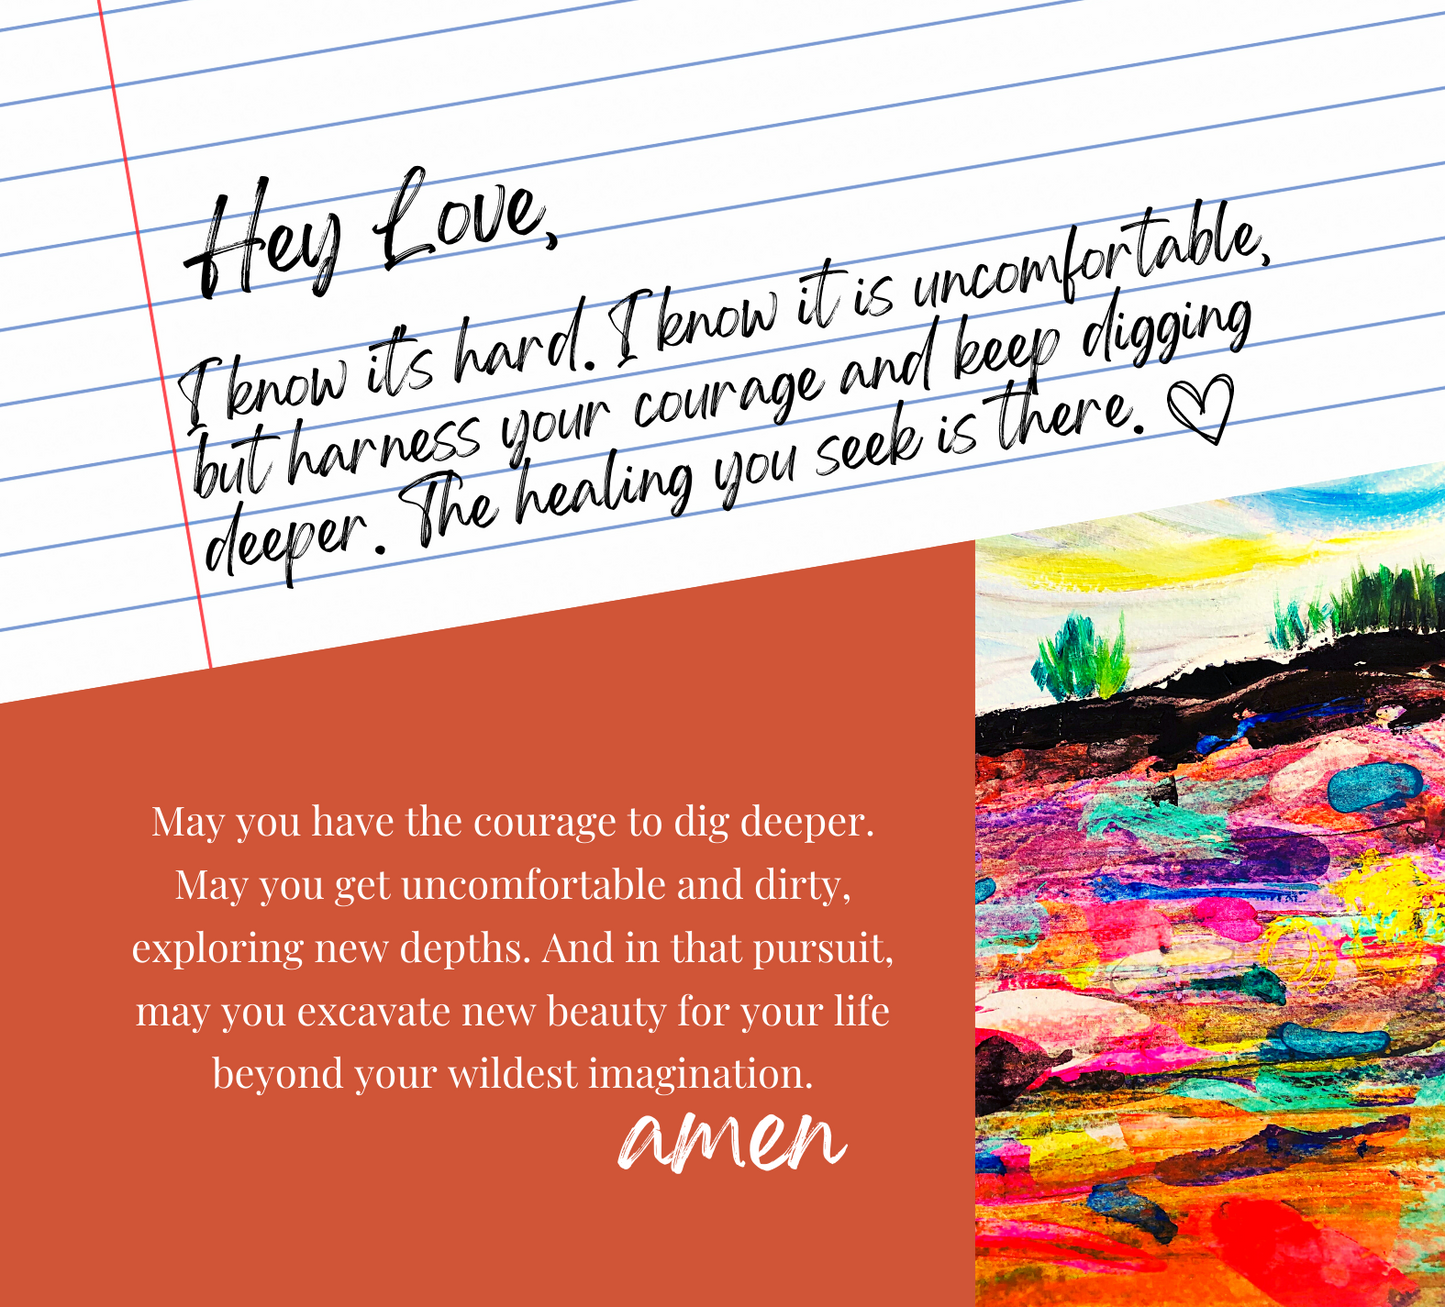 Hey Love,
I know its hard. I know it is uncomfortable,
but harness your courage and keep digging
deeper. The healing you seek is there.
May you have the courage to dig deeper.
May you get uncomfortable and dirty,
exploring new depths. And in that pursuit,
may you excavate new beauty for your life
beyond your wildest imagination.
amen